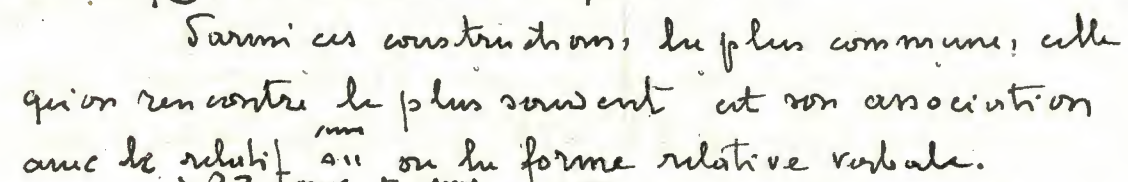 Parmi ces constructions, la plus commune, celle
qu'on rencontre le plus souvent est son association
avec le relatif ou la forme relative verbale.